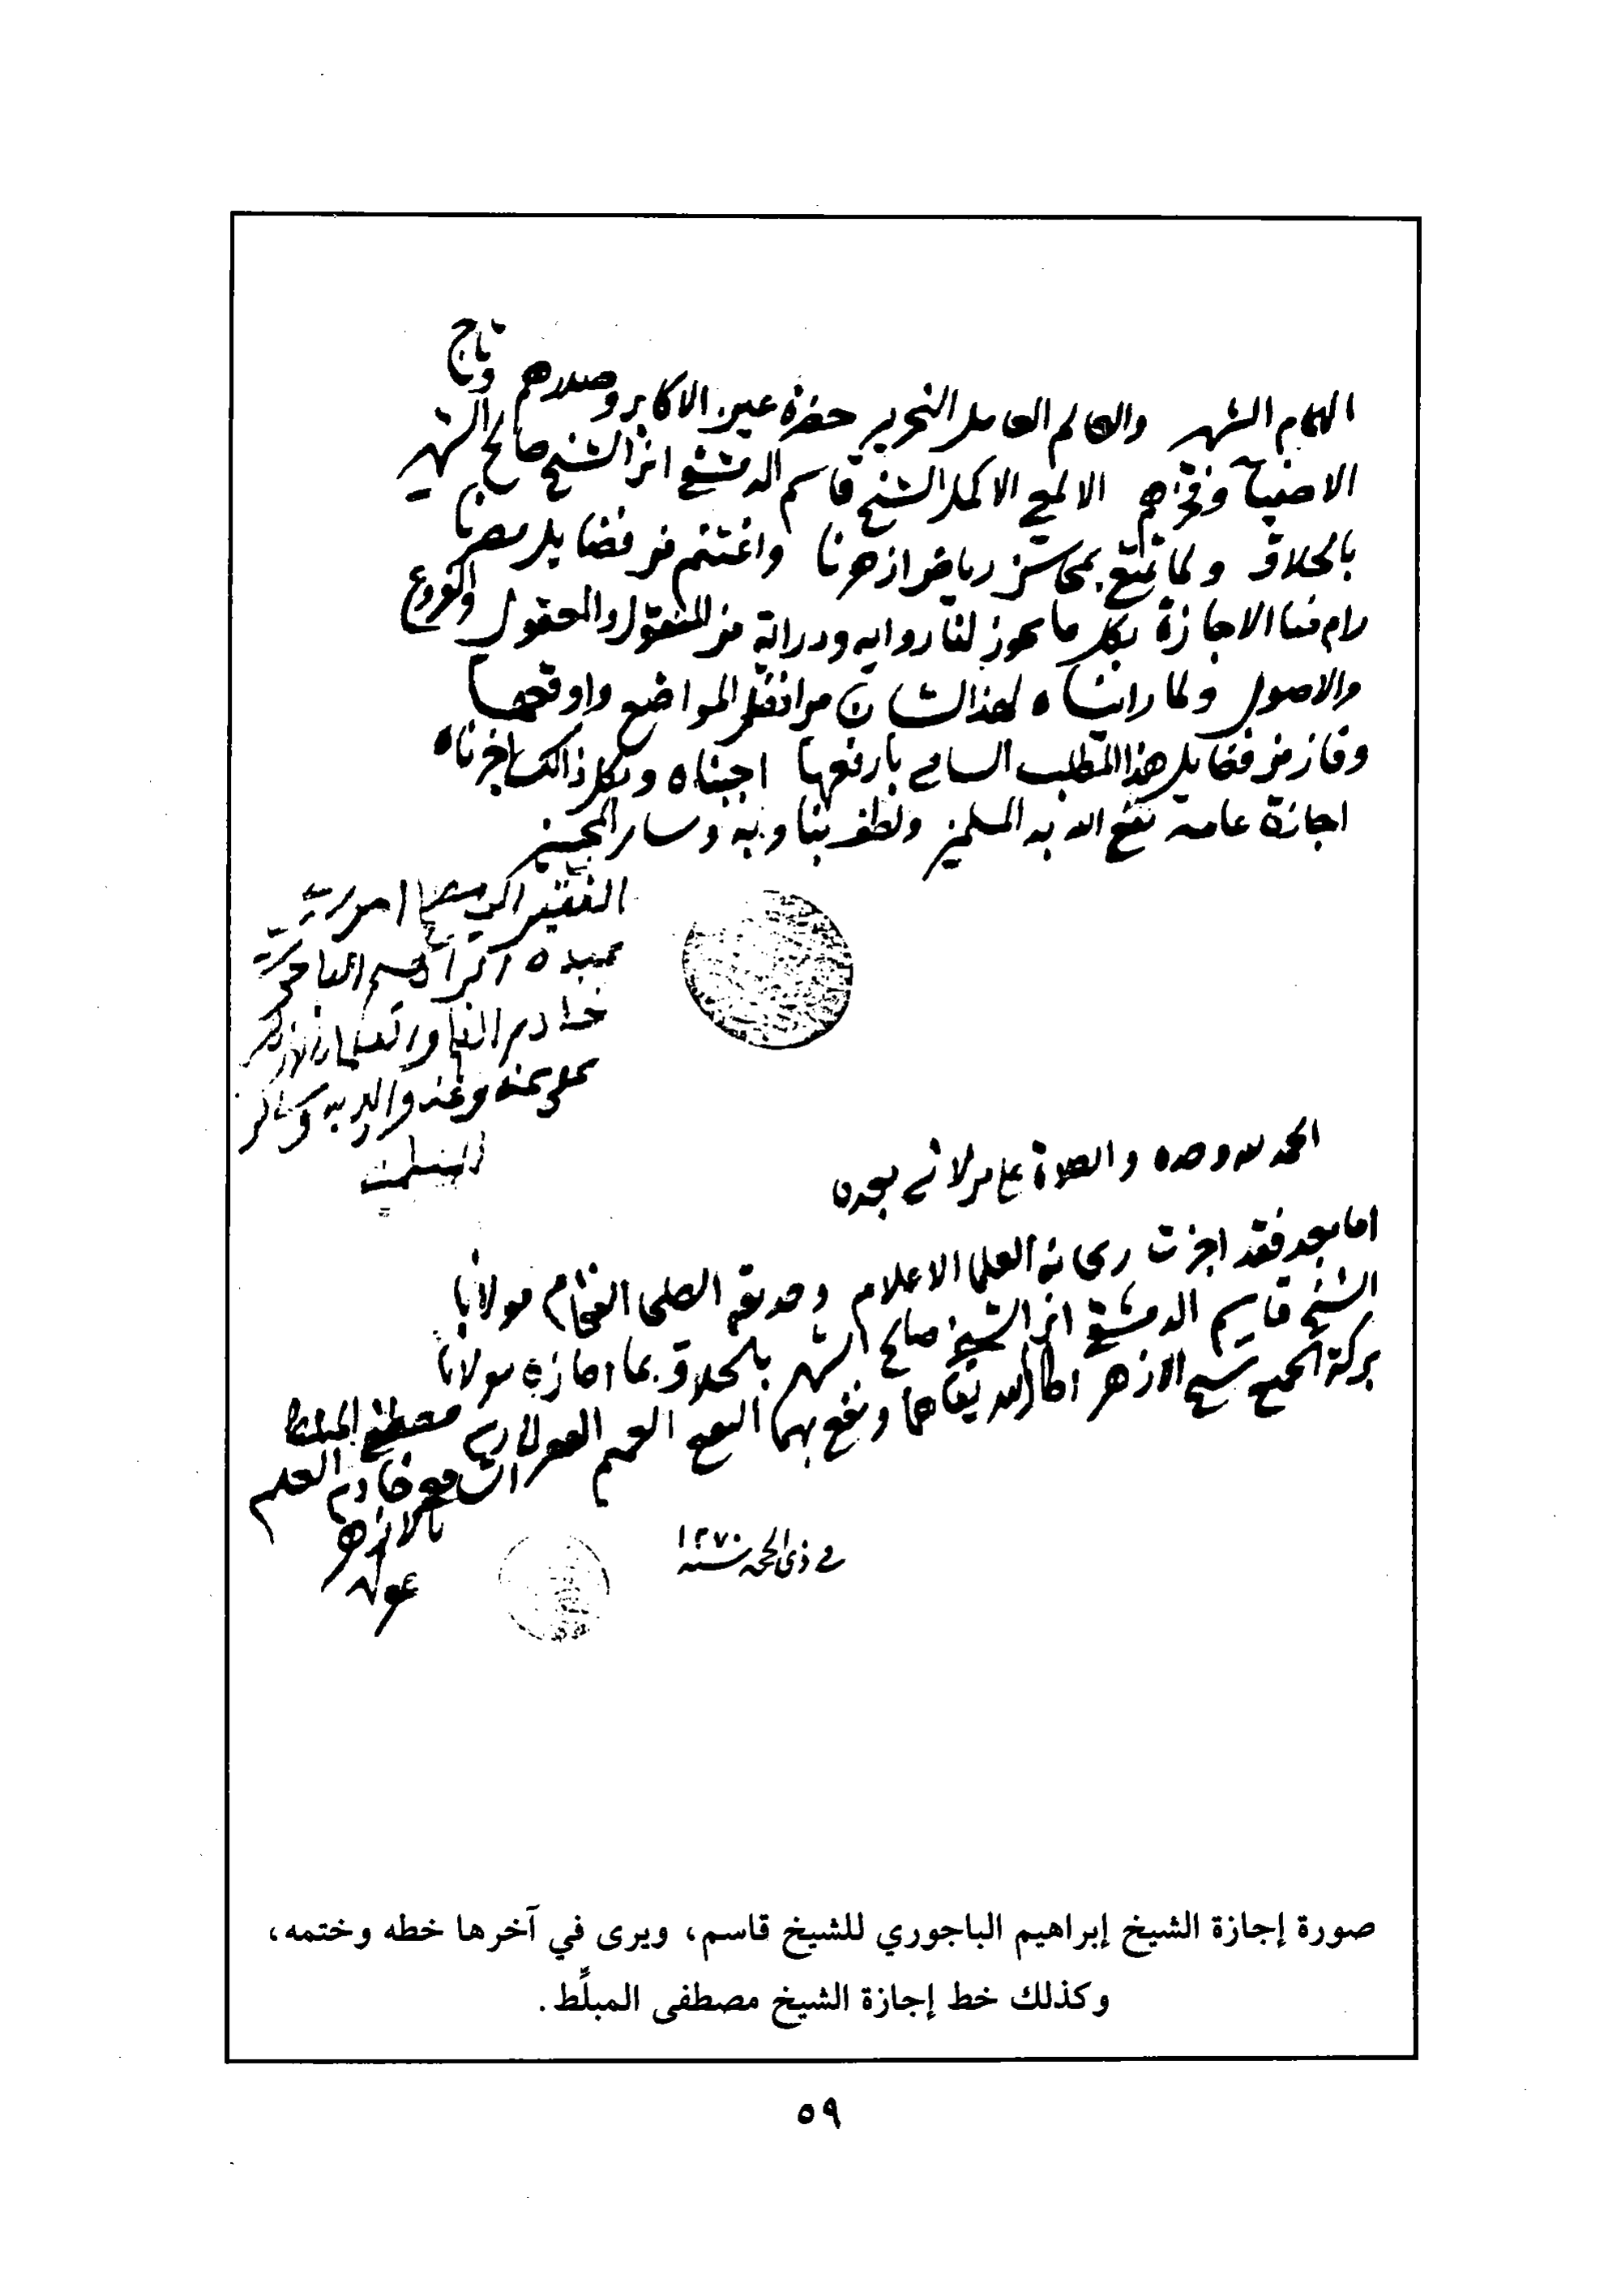 الهمام الشهير والعالم العامل النحرير حضرة عين الاكابر وصدرهم وتاج
الاصفيآ وفخرهم الالمعي الاكمل الشيخ قاسم الدمشقي ابن الشيخ صالح الشهير
بالحلاق ولما تمتع بمحاسن رياض ازهرنا واغتنم من فضايل مصرنا
رام منا الاجازة بكل ما يجوز لنا روايه ودراية من المنقول والمعقول والفروع
والاصول ولما رايناه لهذا الشان من المواضع واوقعها
وفاز من فضايل هذا المطلب السامي بارفعها اجبناه وبكل ذالك اجزناه
اجازة عامة نفع الله به المسلمين ولطف بنا وبه وساير المحبين
الفقير الي
عبيده ابراهيم الباجوري
خادم
عفي عنه وعن والديه وساير
المسلمين
الحمد لله وحده والصلاة على من لا نبي بعده
اما بعد فقد اجزت ريحانة العلما الاعلام وحديقة الصلحا الفخام مولانا
الشيخ قاسم الدمشقي ابن الشيخ صالح الشهير بالحلاق بما اجازه مولانا
بركة الجميع شيخ الازهر اطال الله بقاهما ونفع بهما النفع العميم مصطفى المبلط
الشافعي خادم العلم
بالازهر
في ذي الحجه سنه ١٢٧٠
صورة إجازة الشيخ إبراهيم الباجوري للشيخ قاسم، ويرى في آخرها خطه وختمه،
وكذلك خط إجازة الشيخ مصطفى المبلِّط.
٥٩